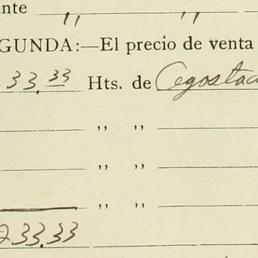 ente " "
GUNDA:—El precio de venta
33.33 Hts. de Agosta
" "
" "
" "
233.33